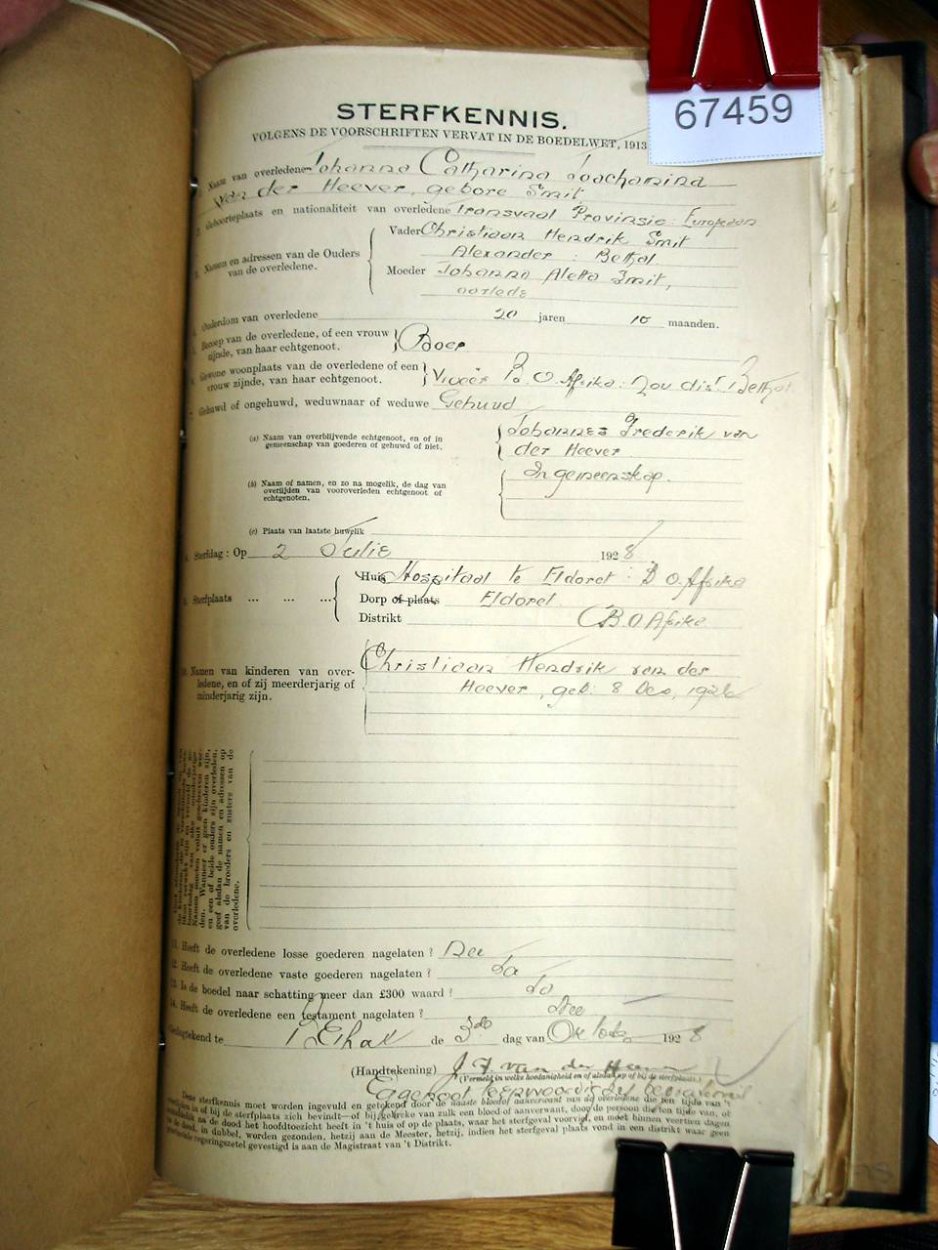 67459
STERFKENNIS.
VOLGENS DE VOORSCHRIFTEN VERVAT IN DE BOEDELWET, 1913
Naam van overledene Johanna Catharina Joachamina
van der Heever, gebore Smit
Geboorteplaats en nationaliteit van overledene Transvaal Provinsie: Europeaan
Namen en adressen van de Ouders van de overledene.
Vader Christiaan Hendrik Smit
Alexander: Bethal
Moeder Johanna Aletta Smit,
oorlede
Ouderdom van overledene 20 jaren 10 maanden.
Beroep van de overledene, of een vrouw
zijnde, van haar echtgenoot. Boer
Gewone woonplaats van de overledene of een
vrouw zijnde, van haar echtgenoot. B. O. Afrika: Nou dist. Bethal
7. Gehuwd of ongehuwd, weduwnaar of weduwe Gehuud
(a) Naam van overblijvende echtgenoot, en of in
gemeenschap van goederen of gehuwd of niet.
Johannes Frederik van
der Heever
In gemeenskap.
(b) Naam of namen, en zo na mogelik, de dag van
overlijden van vooroverleden echtgenoot of
echtgenoten.
(c) Plaats van laatste huwelik
8. Sterfdag: Op 2 Julie 1928
9. Sterfplaats ... ... ...
Huis Hospitaal te Eldoret: B O. Afrika
Dorp of plaats Eldoret
Distrikt B O Afrika
10. Namen van kinderen van over-
ledene, en of zij meerderjarig of
minderjarig zijn.
Christiaan Hendrik van der
Heever, geb: 8 Des, 1926
den. Wanneer er geen kinderen zijn,
en een of beide ouders zijn overleden,
geef alsdan de namen en adressen op
van de broeders en zusters van de
overledene.
11. Heeft de overledene losse goederen nagelaten? Nee
12. Heeft de overledene vaste goederen nagelaten? Ja
13. Is de boedel naar schatting meer dan £300 waard? Ja
14. Heeft de overledene een testament nagelaten? Nee
Gedagtekend te Bethal de 3de dag van Oktober 1928
(Handtekening) J F van der Heever
(Vermeld in welke hoedanigheid en of alsdan op of bij de sterfplaats.)
Eggenoot teenwoordig
Deze sterfkennis moet worden ingevuld en getekend door de naaste bloed of aanverwant van de overledene die ten tijde van 't
overlijden in of bij de sterfplaats zich bevindt—of bij gebreke van zulk een bloed of aanverwant, door de persoon die ten tijde van, of
onmiddellik na de dood het hoofdtoezicht heeft in 't huis of op de plaats, waar het sterfgeval voorviel, en moet binnen veertien dagen
na de dood, in dubbel, worden gezonden, hetzij aan de Meester, hetzij, indien het sterfgeval plaats vond in een distrikt waar geen
provinciale regeringszetel gevestigd is aan de Magistraat van 't Distrikt.